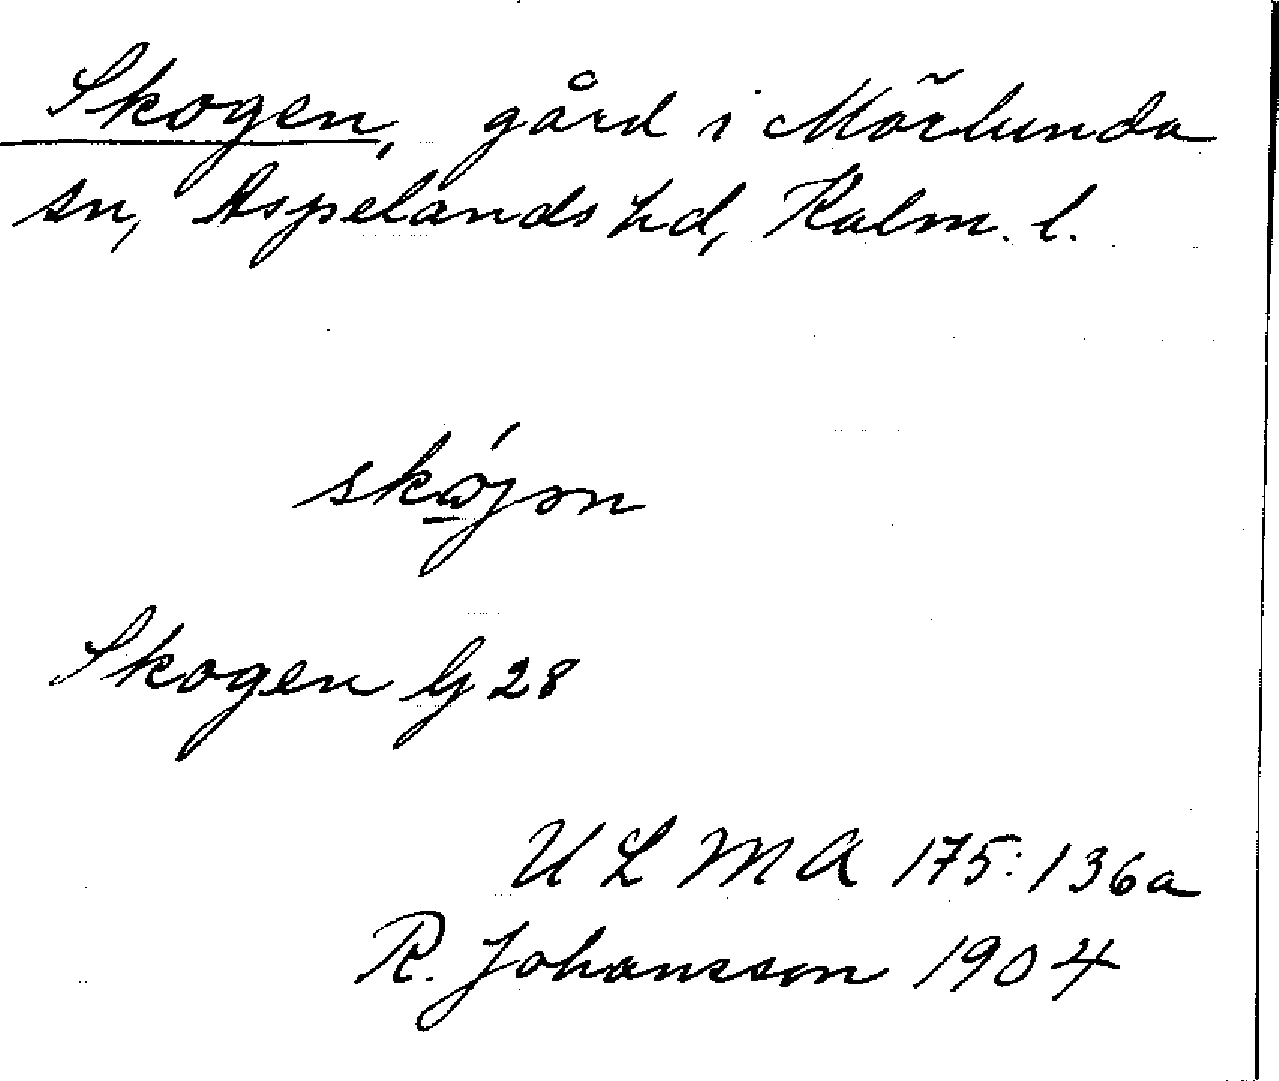 Skogen, gård i Mörlunda
sn, Aspelands hd, Kalm. l.
skǫ́jən
Skogen G 28
ULMA 175:136a
R. Johansson 1904